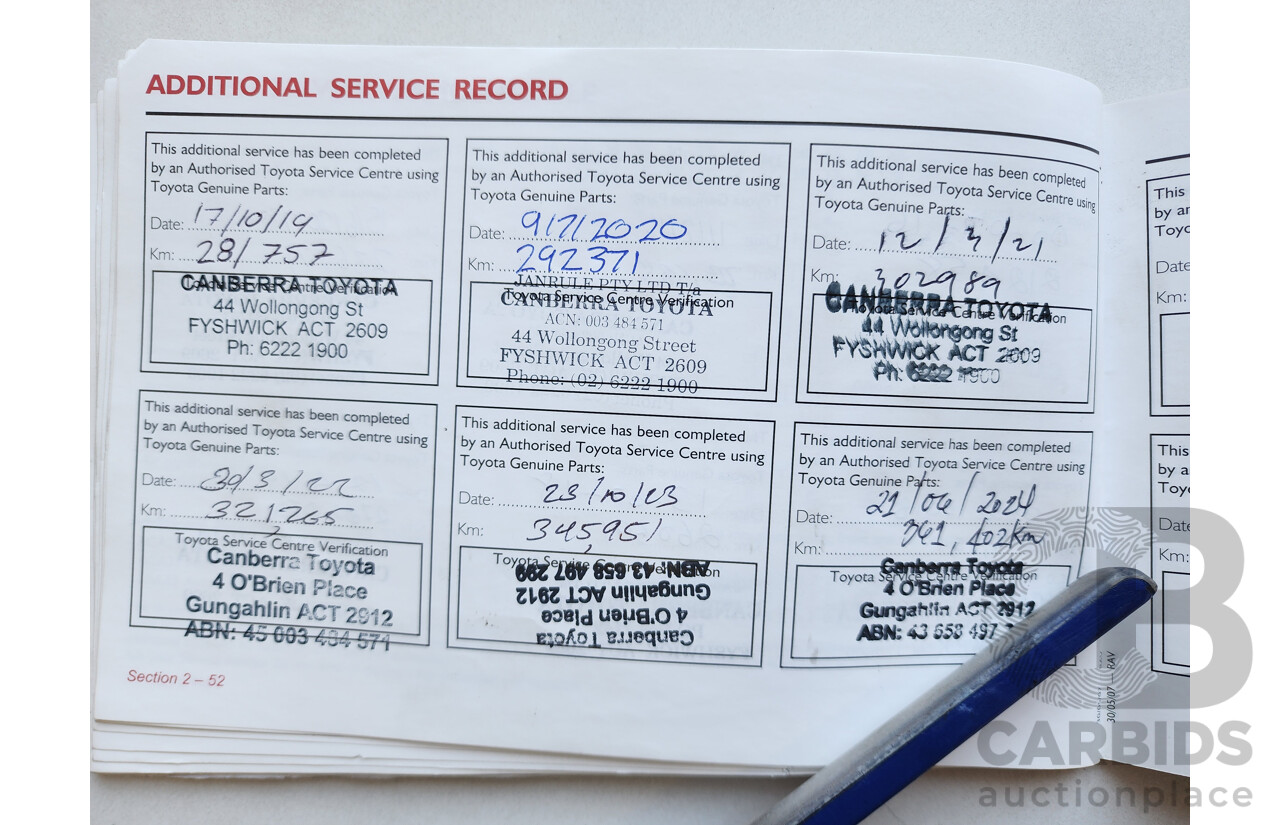 ADDITIONAL SERVICE RECORD
This additional service has been completed
by an Authorised Toyota Service Centre using
Toyota Genuine Parts:
Date: 17/10/19
Km: 281757
Toyota Service Centre Verification
CANBERRA TOYOTA
44 Wollongong St
FYSHWICK ACT 2609
Ph: 6222 1900
This additional service has been completed
by an Authorised Toyota Service Centre using
Toyota Genuine Parts:
Date: 9/7/2020
Km: 292371
JANRULE PTY LTD T/a
Toyota Service Centre Verification
CANBERRA TOYOTA
ACN: 003 484 571
44 Wollongong Street
FYSHWICK ACT 2609
Phone: (02) 6222 1900
This additional service has been completed
by an Authorised Toyota Service Centre using
Toyota Genuine Parts:
Date: 12/3/21
Km: 302989
CANBERRA TOYOTA
Toyota Service Centre Verification
44 Wollongong St
FYSHWICK ACT 2609
Ph: 6222 1900
This additional service has been completed
by an Authorised Toyota Service Centre using
Toyota Genuine Parts:
Date: 30/3/22
Km: 321265
Toyota Service Centre Verification
Canberra Toyota
4 O'Brien Place
Gungahlin ACT 2912
ABN: 45 003 484 571
This additional service has been completed
by an Authorised Toyota Service Centre using
Toyota Genuine Parts:
Date: 23/10/23
Km: 345951
Toyota Service Centre Verification
Canberra Toyota
4 O'Brien Place
Gungahlin ACT 2912
ABN 43 658 497 299
This additional service has been completed
by an Authorised Toyota Service Centre using
Toyota Genuine Parts:
Date: 21/06/2024
Km: 361,402km
Canberra Toyota
Toyota Service Centre Verification
4 O'Brien Place
Gungahlin ACT 2912
ABN: 43 658 497
Section 2 – 52
30/05/07 — RAV
This
Date
Km:
This
Date
Km:
B
CARBIDS
auctionplace